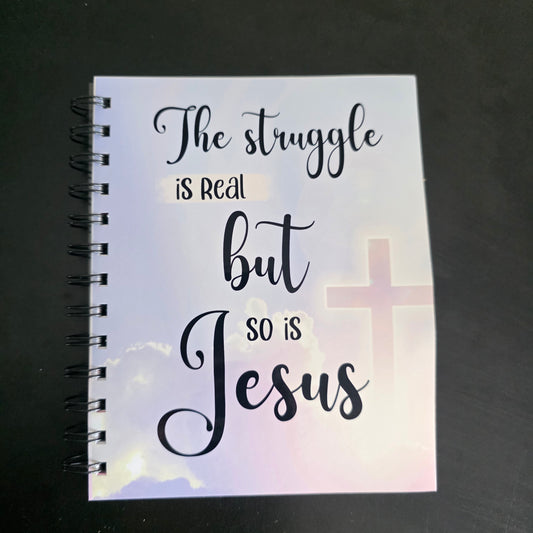 The struggle
is Real
but
so is
Jesus